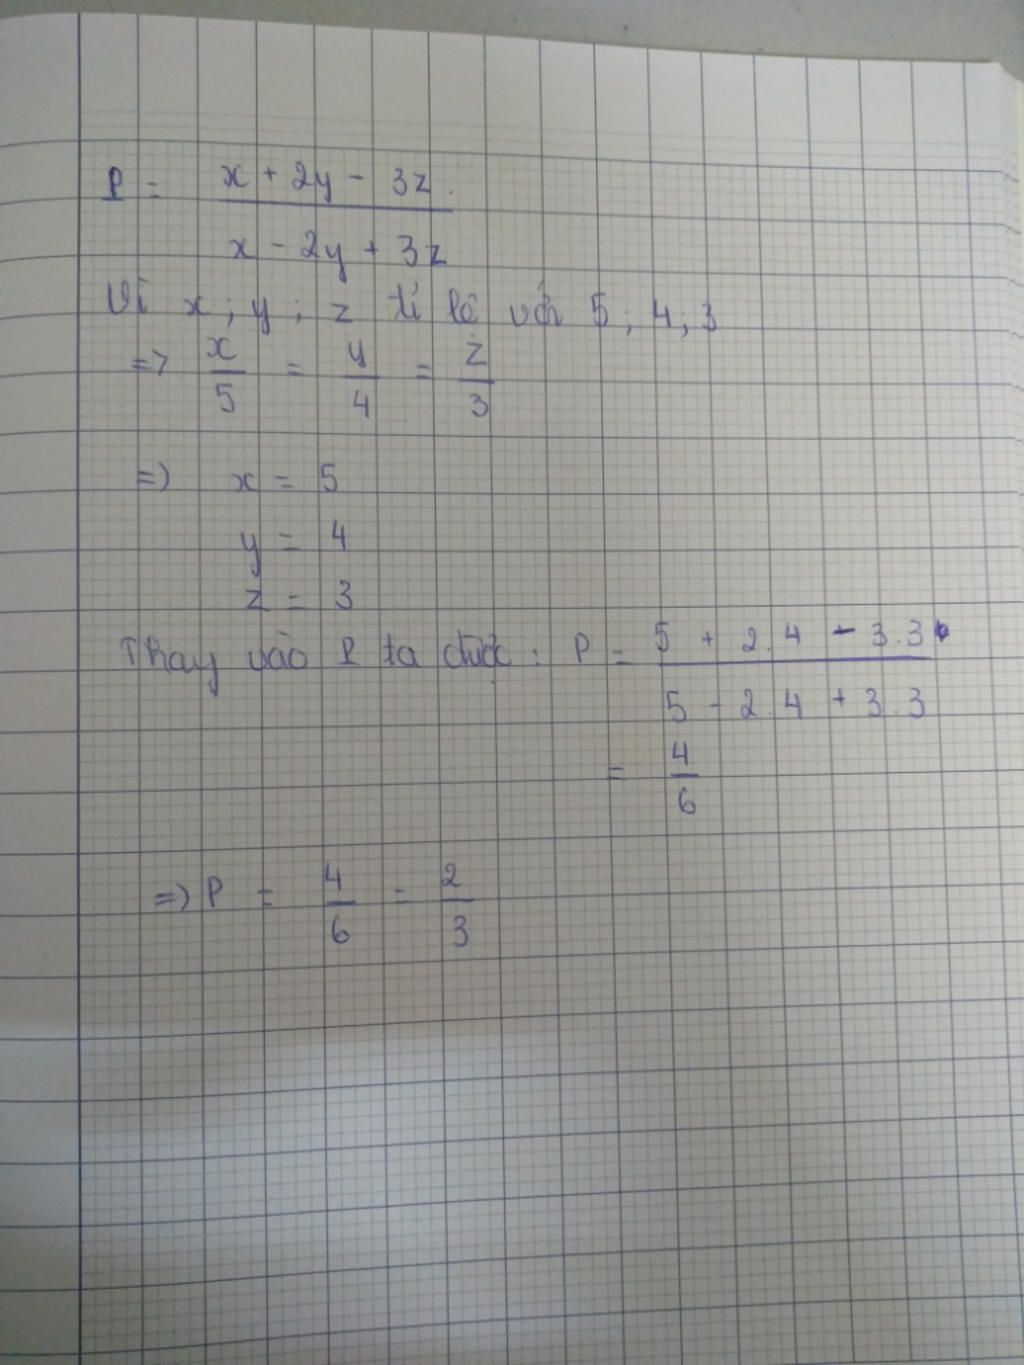 P = (x + 2y - 3z) / (x - 2y + 3z)
Vì x ; y ; z tỉ lệ với 5 ; 4 ; 3
=> x/5 = y/4 = z/3
=> x = 5
y = 4
z = 3
Thay vào P ta được : P = (5 + 2.4 - 3.3) / (5 - 2.4 + 3.3)
= 4/6
=> P = 4/6 = 2/3